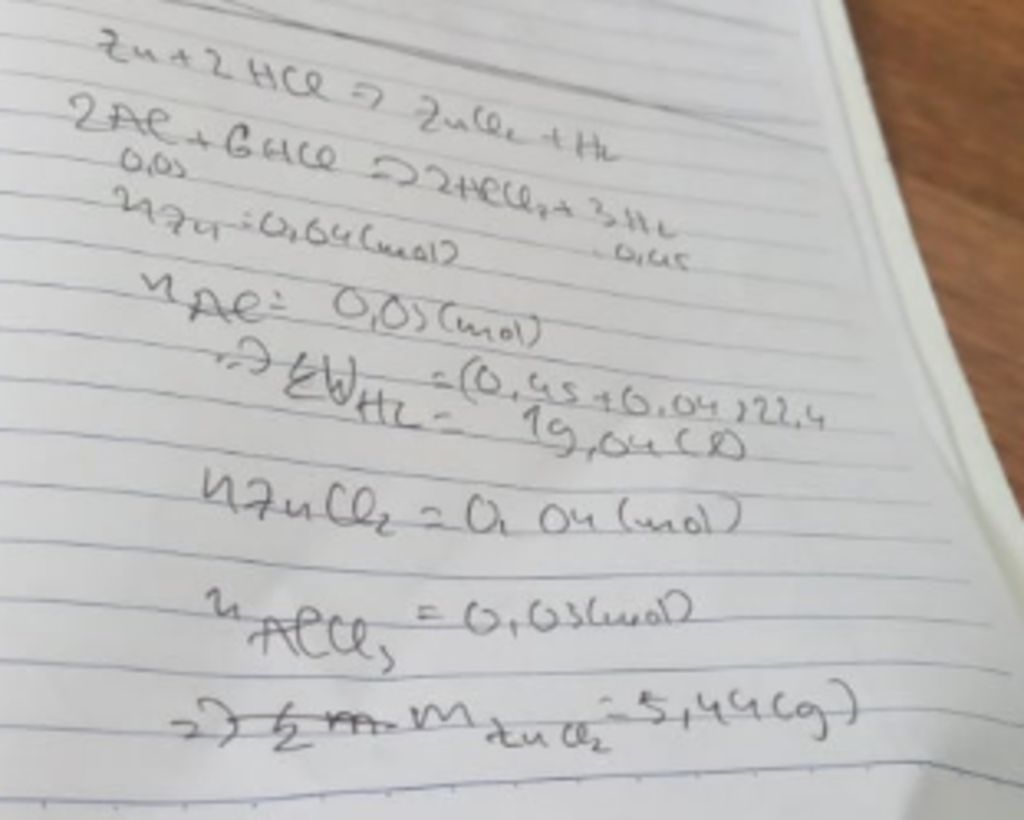 Zn + 2 HCl => ZnCl2 + H2
2Al + 6HCl => 2AlCl3 + 3H2
0,03 0,45
nZn = 0,04 (mol)
nAl = 0,03 (mol)
=> ΣVH2 = (0,45 + 0,04) 22,4
= 19,04 (l)
nZnCl2 = 0,04 (mol)
nAlCl3 = 0,03 (mol)
=> m ZnCl2 = 5,44 (g)